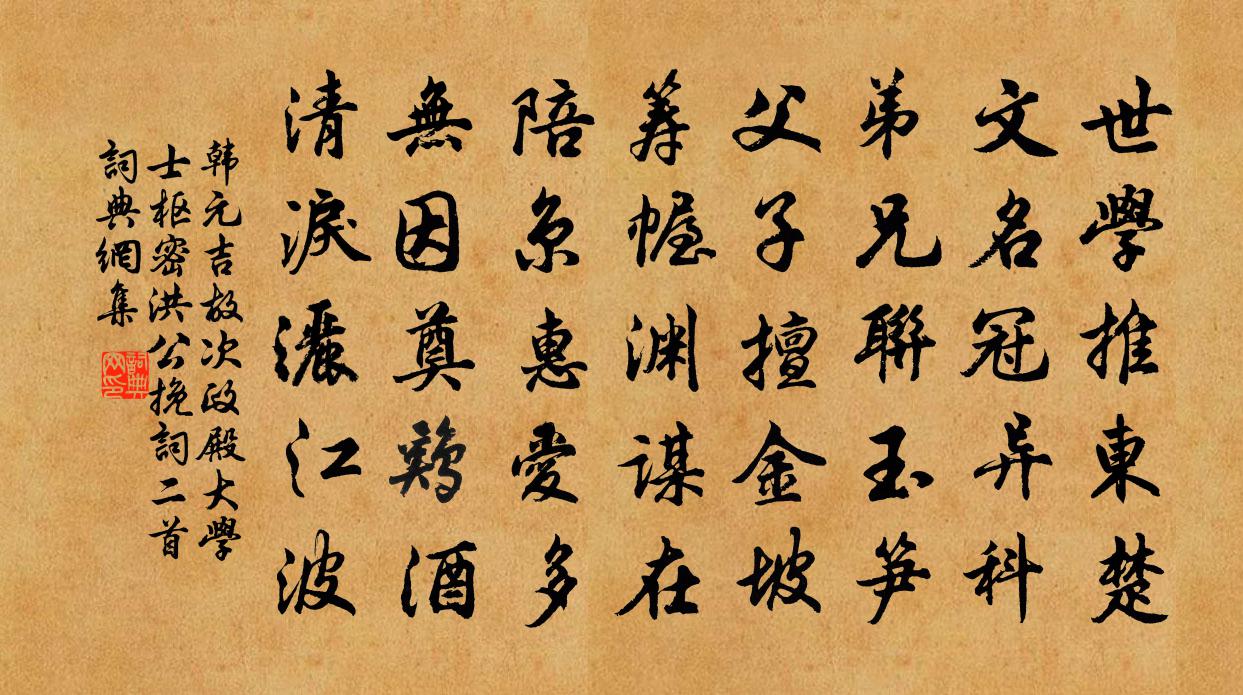 世學推東楚
文名冠异科
弟兄聯玉笋
父子擅金坡
筹幄渊謀在
陪京惠愛多
無因奠鷄酒
清淚灑江波
韩元吉故次政殿大學
士枢密洪公挽詞二首
詞典網集
詞典网印